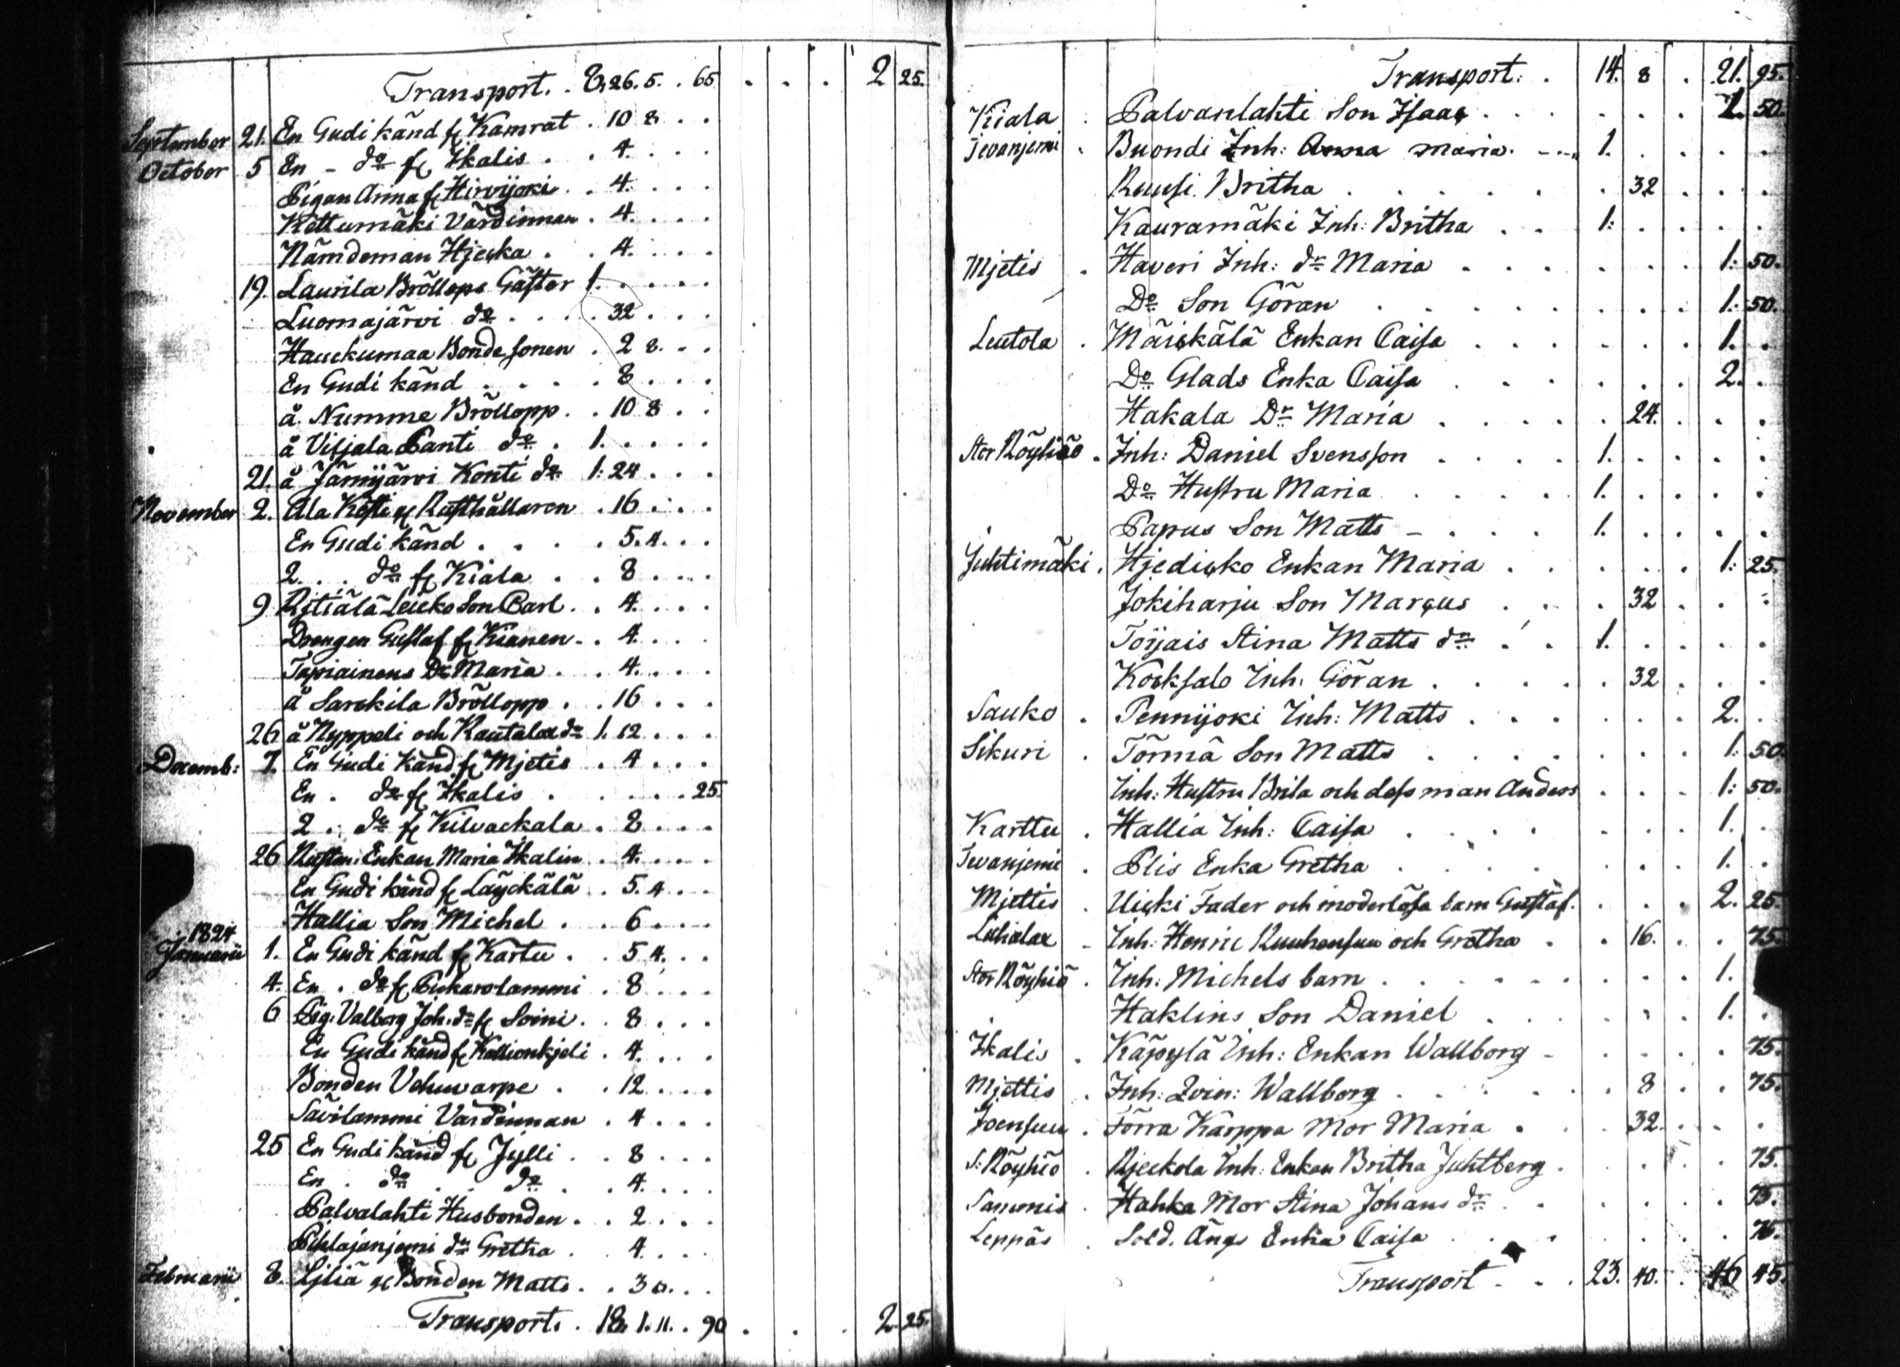 Transport. . 8, 26. 5. . 65 . . . . 2 25.
September 21. En Gudi känd fr Kamrat . 10 8 . .
October 5 En - do fr Ikalis . . 4. . . .
Pigan Anna fr Hirvijoki . . 4. . . .
Kettumäki Värdinnan . 4. . . .
Nämdeman Hjecka . . 4. . . .
19. Laurila Bröllops Gäster 1. . . . .
Luomajärvi do . . . . 32 . . .
Hauckumaa Bonde sonen . 2 8. . .
En Gudi känd . . . . 8 . . .
å Numme Bröllopp . . 10 8 . .
å Viljala Panti do . 1. . . . .
21. å Jämijärvi Konti do 1: 24 . . .
November 2. Ala Rusthållaren . 16 . . .
En Gudi känd . . . . 5. 4. . .
2. . . do fr Kiala . . 8 . . .
9 Leucko Son Carl . . 4. . . .
Drengen Gustaf fr Kianen . . 4. . . .
Dr Maria . . . 4. . . .
å Sarckila Bröllopp . . 16 . . .
26 å Nyppeli och Rautala do 1. 12 . . .
Decemb: 7. En Gudi känd fr Mjetis . 4 . . .
En . do fr Ikalis . . . . . . 25.
2 . do fr Kilvackala . 8 . . .
26 Enkan Maria Ikalin . 4. . . .
En Gudi känd fr Läyckälä . 5. 4 . .
Hallia Son Michel . . 6 . . .
1824
Januarii 1. En Gudi känd fr Kartu . . 5 4. . .
4. En . do fr . 8 . . .
6 Pig: Valborg Joh: dr fr Soini . . 8 . . .
En Gudi känd fr . 4. . . .
Bonden . . 12 . . .
Sävilammi Värdinnan . 4 . . .
25 En Gudi känd fr Jylli . . 8 . . .
En . do . . do . . 4. . . .
Palvalahti Husbonden . . 2 . . .
dr Gretha . . 4. . . .
Februarii 8. Bonden Matts . . 3 . . .
Transport. . 18, 1. 11. . 90 . . . 2. 25.
Transport: . 14. 8 . 21. 95.
Kiala . Palvanlahti Son Isaac . . . . . . 1. 50.
Jevanjemi . Buondi Inh: Anna Maria . 1. . . . .
Ruusi Britha . . . . . . 32 . . .
Kauramäki Inh: Britha . . 1: . . . .
Mjetis . Haveri Inh: dr Maria . . . . . . 1: 50.
Do Son Göran . . . . . . . 1: 50.
Leutola . Märckälä Enkan Caisa . . . . . . 1. .
Do Glads Enka Caisa . . . . . . 2. .
Hakala Dr Maria . . . . . 24. . . .
Stor Röyhiö . Inh: Daniel Svensson . . . . 1. . . . .
Do Hustru Maria . . . . . 1. . . . .
Papus Son Matts - . . . 1. . . . .
Juhtimäki . Hjedicko Enkan Maria . . . . . . 1: 25.
Jokiharju Son Marcus . . . 32 . . .
Toijais Stina Matts dr . . . 1. . . . .
Kocksalo Inh: Göran . . . . . 32 . . .
Sauko . Pennijoki Inh: Matts . . . . . . 2. .
Sikuri . Törmä Son Matts . . . . . . . 1: 50.
Inh: Hustru Brita och dess man Anders . . . 1: 50.
Karttu . Hallia Inh: Caisa . . . . . . . 1. .
Jevanjemi . Plis Enka Gretha . . . . . . . 1. .
Mjettis . Uicki Fader och moderlösa barn Gustaf . . . . 2. 25.
- Inh: Henric och Gretha . . 16. . . 75.
Stor Röyhiö . Inh: Michels barn . . . . . . . 1. .
Haklins Son Daniel . . . . . . 1. .
Ikalis . Käpylä Inh: Enkan Wallborg - . . . . . 75.
Mjettis . Inh: Qvin: Wallborg . . . . . 8 . . 75.
Joensuu . Förra Karppa Mor Maria . . . 32. . . .
S: Röyhiö . Rjeckola Inh: Enkan Britha Juhtberg . . . . . . 75.
Sammis . Hahka Mor Stina Johans dr . . . . . . 75.
Leppäs . Sold. Ängs Enka Caisa . . . . . . 75.
Transport . . . 23. 40. . 46 45.